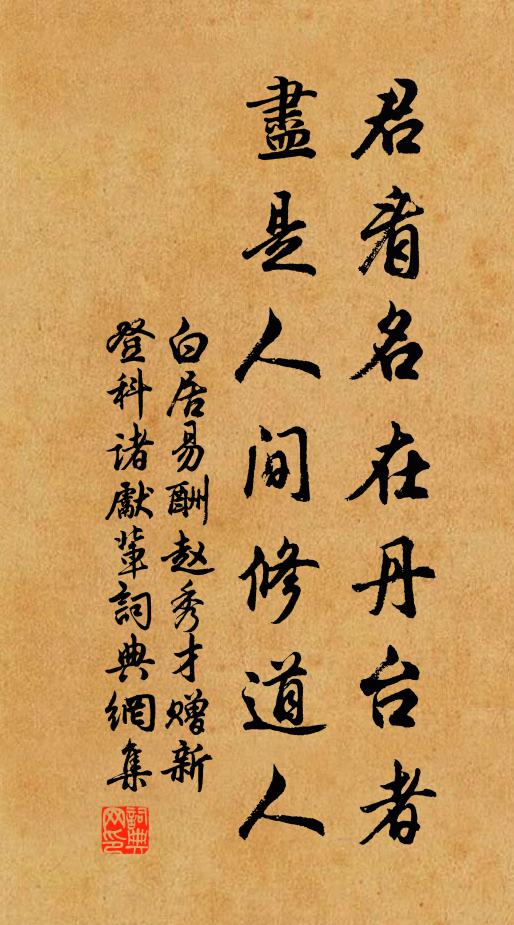 君看名在丹台者
盡是人间修道人
白居易酬赵秀才赠新
登科诸獻輩詞典網集
詞典网印